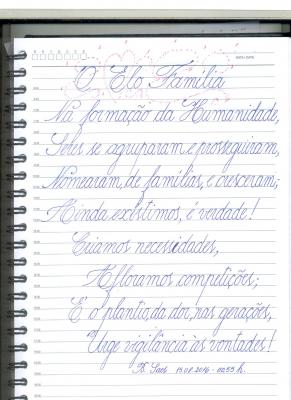 O Elo Família
Na formação da Humanidade,
Seres se agruparam e prosseguiram,
Nomearam, de famílias, e cresceram;
Ainda existimos, é verdade!
Criamos necessidades,
Afloramos competições;
E o plantio, da dor, nas gerações,
Urge vigilância às vontades!